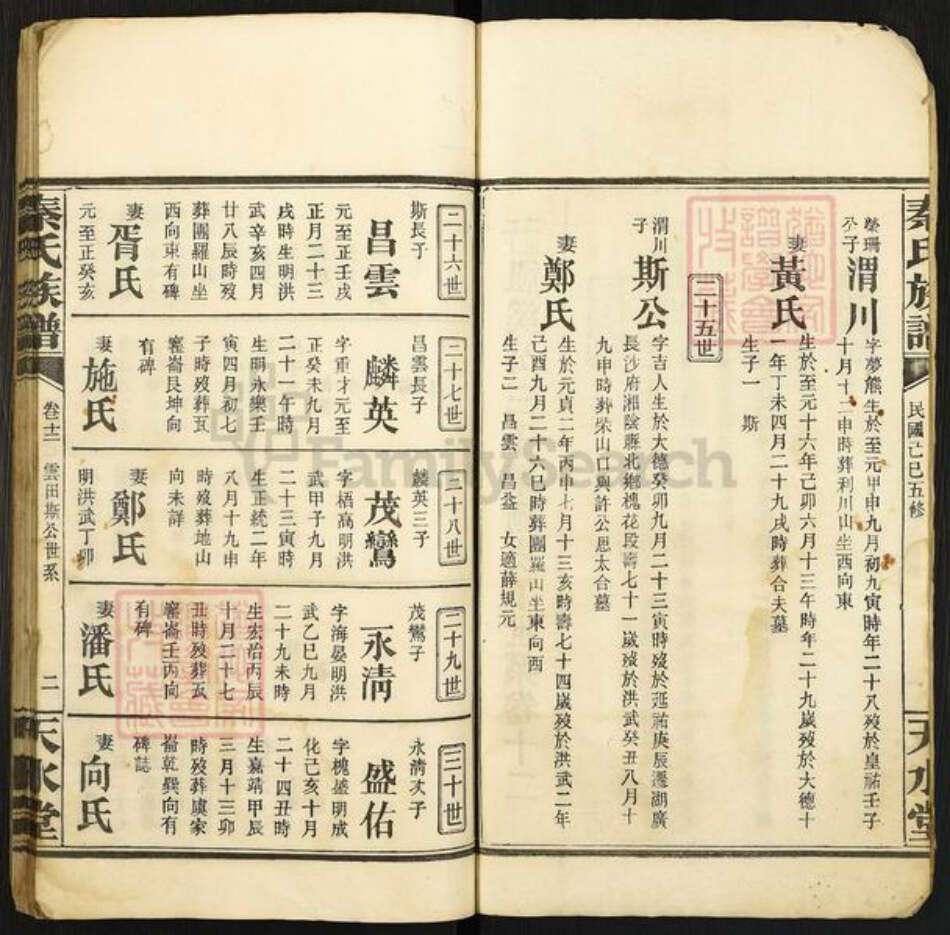 秦氏族譜
民國己巳五修
天水堂
榮珊公子
渭川
字夢熊生於至元甲申九月初九寅時年二十八歿於皇祐壬子
十月十二申時葬利川山坐西向東
妻黃氏
生於至元十六年己卯六月十三年時年二十九歲歿於大德十
一年丁未四月二十九戌時葬合夫墓
生子一 斯
二十五世
渭川子
斯公
字吉人生於大德癸卯九月二十三寅時歿於延祐庚辰遷湖廣
長沙府湘陰縣北鄉槐花段壽七十一歲歿於洪武癸丑八月十
九申時葬柴山口與許公思太合墓
妻鄭氏
生於元貞二年丙申七月十三亥時壽七十四歲歿於洪武二年
己酉九月二十六巳時葬團羅山坐東向西
生子二 昌雲 昌益 女適薛規元
二十六世
斯長子
昌雲
元至正壬戌
正月二十三
戌時生明洪
武辛亥四月
廿八辰時歿
葬團羅山坐
西向東有碑
妻胥氏
元至正癸亥
二十七世
昌雲長子
麟英
字重才元至
正癸未九月
二十一午時
生明永樂壬
寅四月初七
子時歿葬瓦
窰崙艮坤向
有碑
妻施氏
二十八世
麟英三子
茂鸞
字梧高明洪
武甲子九月
二十三寅時
生正統二年
八月十九申
時歿葬地山
向未詳
妻鄭氏
明洪武丁卯
二十九世
茂鸞子
永清
字海晏明洪
武乙巳九月
二十九未時
生宏治丙辰
十月二十七
丑時歿葬瓦
窰崙壬丙向
有碑
妻潘氏
三十世
永清次子
盛佑
字槐盛明成
化己亥十月
二十四丑時
生嘉靖甲辰
三月十三卯
時歿葬虞家
崙乾巽向有
碑誌
妻向氏
秦氏族譜
卷十二 雲田斯公世系
二
天水堂
FamilySearch